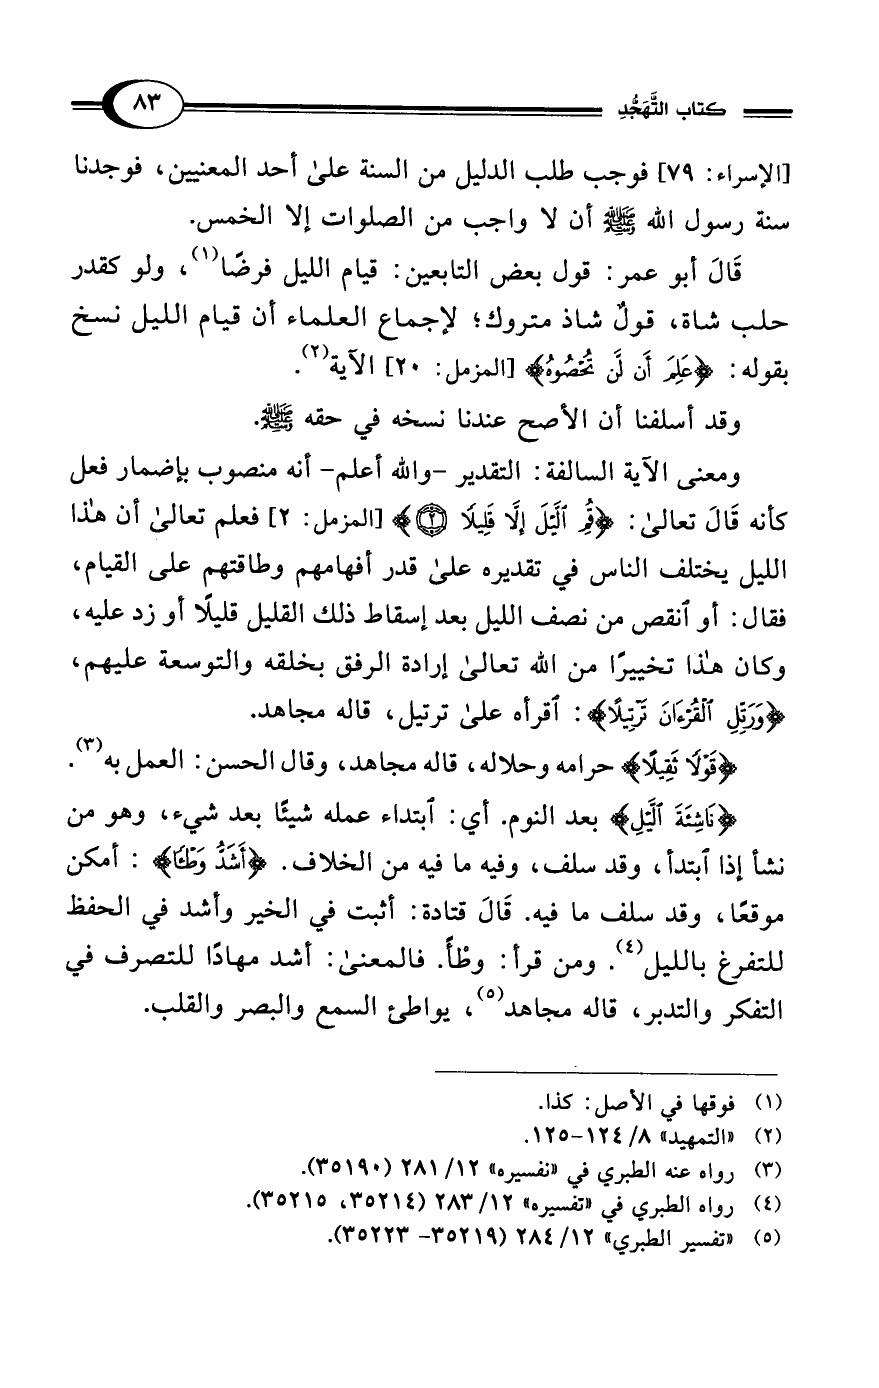 كتاب التَّهَجُّد ٨٣
[الإسراء: ٧٩] فوجب طلب الدليل من السنة علىٰ أحد المعنيين، فوجدنا
سنة رسول الله ﷺ أن لا واجب من الصلوات إلا الخمس.
قَالَ أبو عمر: قول بعض التابعين: قيام الليل فرضًا(١)، ولو كقدر
حلب شاة، قولٌ شاذ متروك؛ لإجماع العلماء أن قيام الليل نسخ
بقوله: ﴿عَلِمَ أَن لَّن تُحْصُوهُ﴾ [المزمل: ٢٠] الآية(٢).
وقد أسلفنا أن الأصح عندنا نسخه في حقه ﷺ.
ومعنى الآية السالفة: التقدير -والله أعلم- أنه منصوب بإضمار فعل
كأنه قَالَ تعالىٰ: ﴿قُمِ ٱلَّيْلَ إِلَّا قَلِيلًا ۝٢﴾ [المزمل: ٢] فعلم تعالىٰ أن هٰذا
الليل يختلف الناس في تقديره علىٰ قدر أفهامهم وطاقتهم على القيام،
فقال: أو ٱنقص من نصف الليل بعد إسقاط ذلك القليل قليلًا أو زد عليه،
وكان هٰذا تخييرًا من الله تعالىٰ إرادة الرفق بخلقه والتوسعة عليهم،
﴿وَرَتِّلِ ٱلْقُرْءَانَ تَرْتِيلًا﴾: ٱقرأه علىٰ ترتيل، قاله مجاهد.
﴿قَوْلًا ثَقِيلًا﴾ حرامه وحلاله، قاله مجاهد، وقال الحسن: العمل به(٣).
﴿نَاشِئَةَ ٱلَّيْلِ﴾ بعد النوم. أي: ٱبتداء عمله شيئًا بعد شيء، وهو من
نشأ إذا ٱبتدأ، وقد سلف، وفيه ما فيه من الخلاف. ﴿أَشَدُّ وَطْـًٔا﴾ : أمكن
موقعًا، وقد سلف ما فيه. قَالَ قتادة: أثبت في الخير وأشد في الحفظ
للتفرغ بالليل(٤). ومن قرأ: وطْأً. فالمعنىٰ: أشد مهادًا للتصرف في
التفكر والتدبر، قاله مجاهد(٥)، يواطئ السمع والبصر والقلب.
(١) فوقها في الأصل: كذا.
(٢) «التمهيد» ٨/ ١٢٤-١٢٥.
(٣) رواه عنه الطبري في «تفسيره» ١٢/ ٢٨١ (٣٥١٩٠).
(٤) رواه الطبري في «تفسيره» ١٢/ ٢٨٣ (٣٥٢١٤، ٣٥٢١٥).
(٥) «تفسير الطبري» ١٢/ ٢٨٤ (٣٥٢١٩- ٣٥٢٢٣).